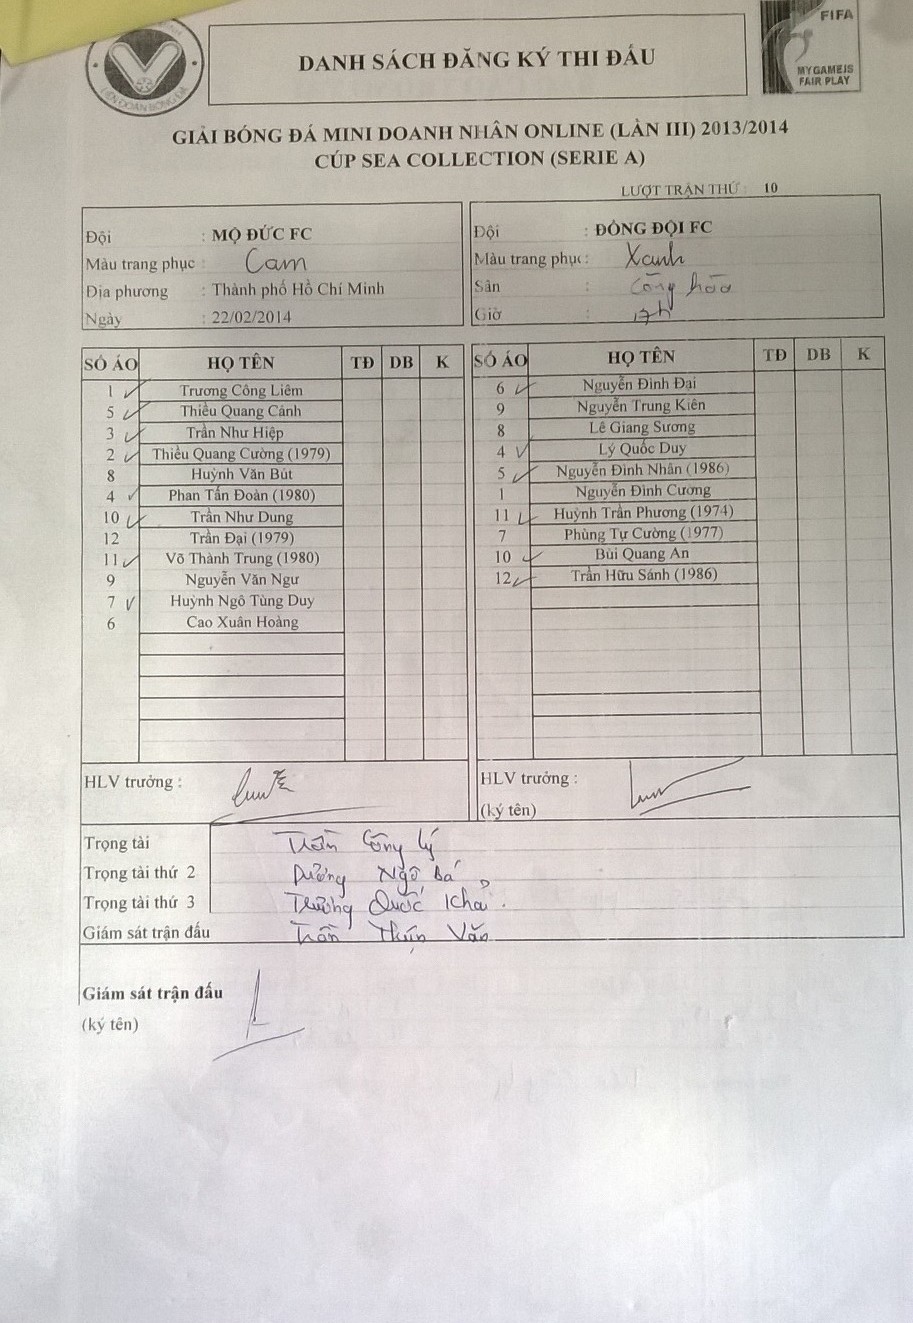 LIÊN ĐOÀN BÓNG ĐÁ
DANH SÁCH ĐĂNG KÝ THI ĐẤU
FIFA
MY GAME IS
FAIR PLAY
GIẢI BÓNG ĐÁ MINI DOANH NHÂN ONLINE (LẦN III) 2013/2014
CÚP SEA COLLECTION (SERIE A)
LƯỢT TRẬN THỨ : 10
Đội : MỘ ĐỨC FC
Màu trang phục : Cam
Địa phương : Thành phố Hồ Chí Minh
Ngày : 22/02/2014
Đội : ĐỒNG ĐỘI FC
Màu trang phục : Xanh
Sân : Cộng hòa
Giờ : 17h
SỐ ÁO HỌ TÊN TĐ DB K
1 Trương Công Liêm
5 Thiều Quang Cảnh
3 Trần Như Hiệp
2 Thiều Quang Cường (1979)
8 Huỳnh Văn Bút
4 Phan Tấn Đoàn (1980)
10 Trần Như Dung
12 Trần Đại (1979)
11 Võ Thành Trung (1980)
9 Nguyễn Văn Ngư
7 Huỳnh Ngô Tùng Duy
6 Cao Xuân Hoàng
SỐ ÁO HỌ TÊN TĐ DB K
6 Nguyễn Đình Đại
9 Nguyễn Trung Kiên
8 Lê Giang Sương
4 Lý Quốc Duy
5 Nguyễn Đình Nhân (1986)
1 Nguyễn Đình Cương
11 Huỳnh Trần Phương (1974)
7 Phùng Tự Cường (1977)
10 Bùi Quang An
12 Trần Hữu Sánh (1986)
HLV trưởng :
HLV trưởng :
(ký tên)
Trọng tài Trần Công Lý
Trọng tài thứ 2 Dương Ngô Bá
Trọng tài thứ 3 Trương Quốc Khải.
Giám sát trận đấu Trần Thịn Văn
Giám sát trận đấu
(ký tên)